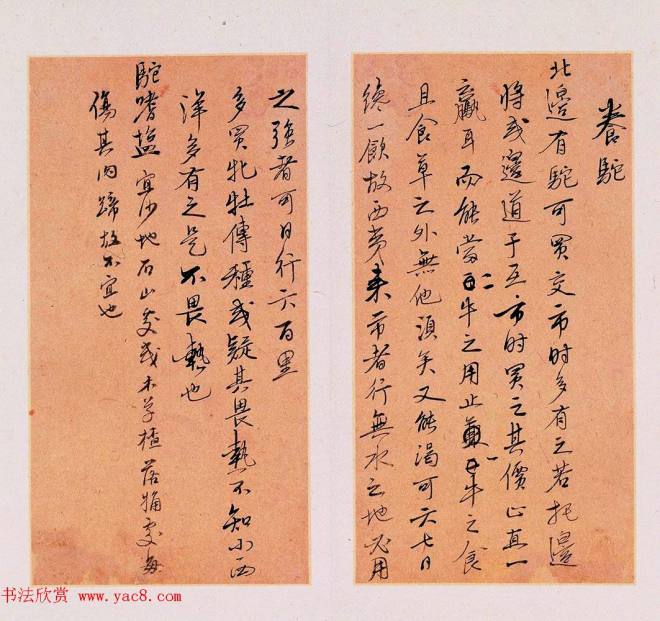 養駝
北邊有駝可買交市时多有之若托邊
將或邊道于互市时買之其價止直一
羸耳而能當二牛之用止兼一牛之食
且食草之外無他須矣又能渴可六七日
纔一飲故西夷来市者行無水之地必用
之強者可日行六百里
多買牝牡傳種或疑其畏執不知小西
洋多有之是不畏執也
駝嗜塩宜沙地石山處或木草楂落處每
傷其肉蹄故不宜也
书法欣赏 www.yac8.com